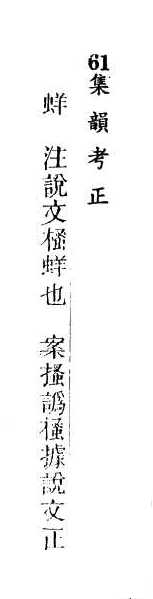 61集韻考正
蛘 注說文𣖻蛘也 案搔譌𣖻據說文正